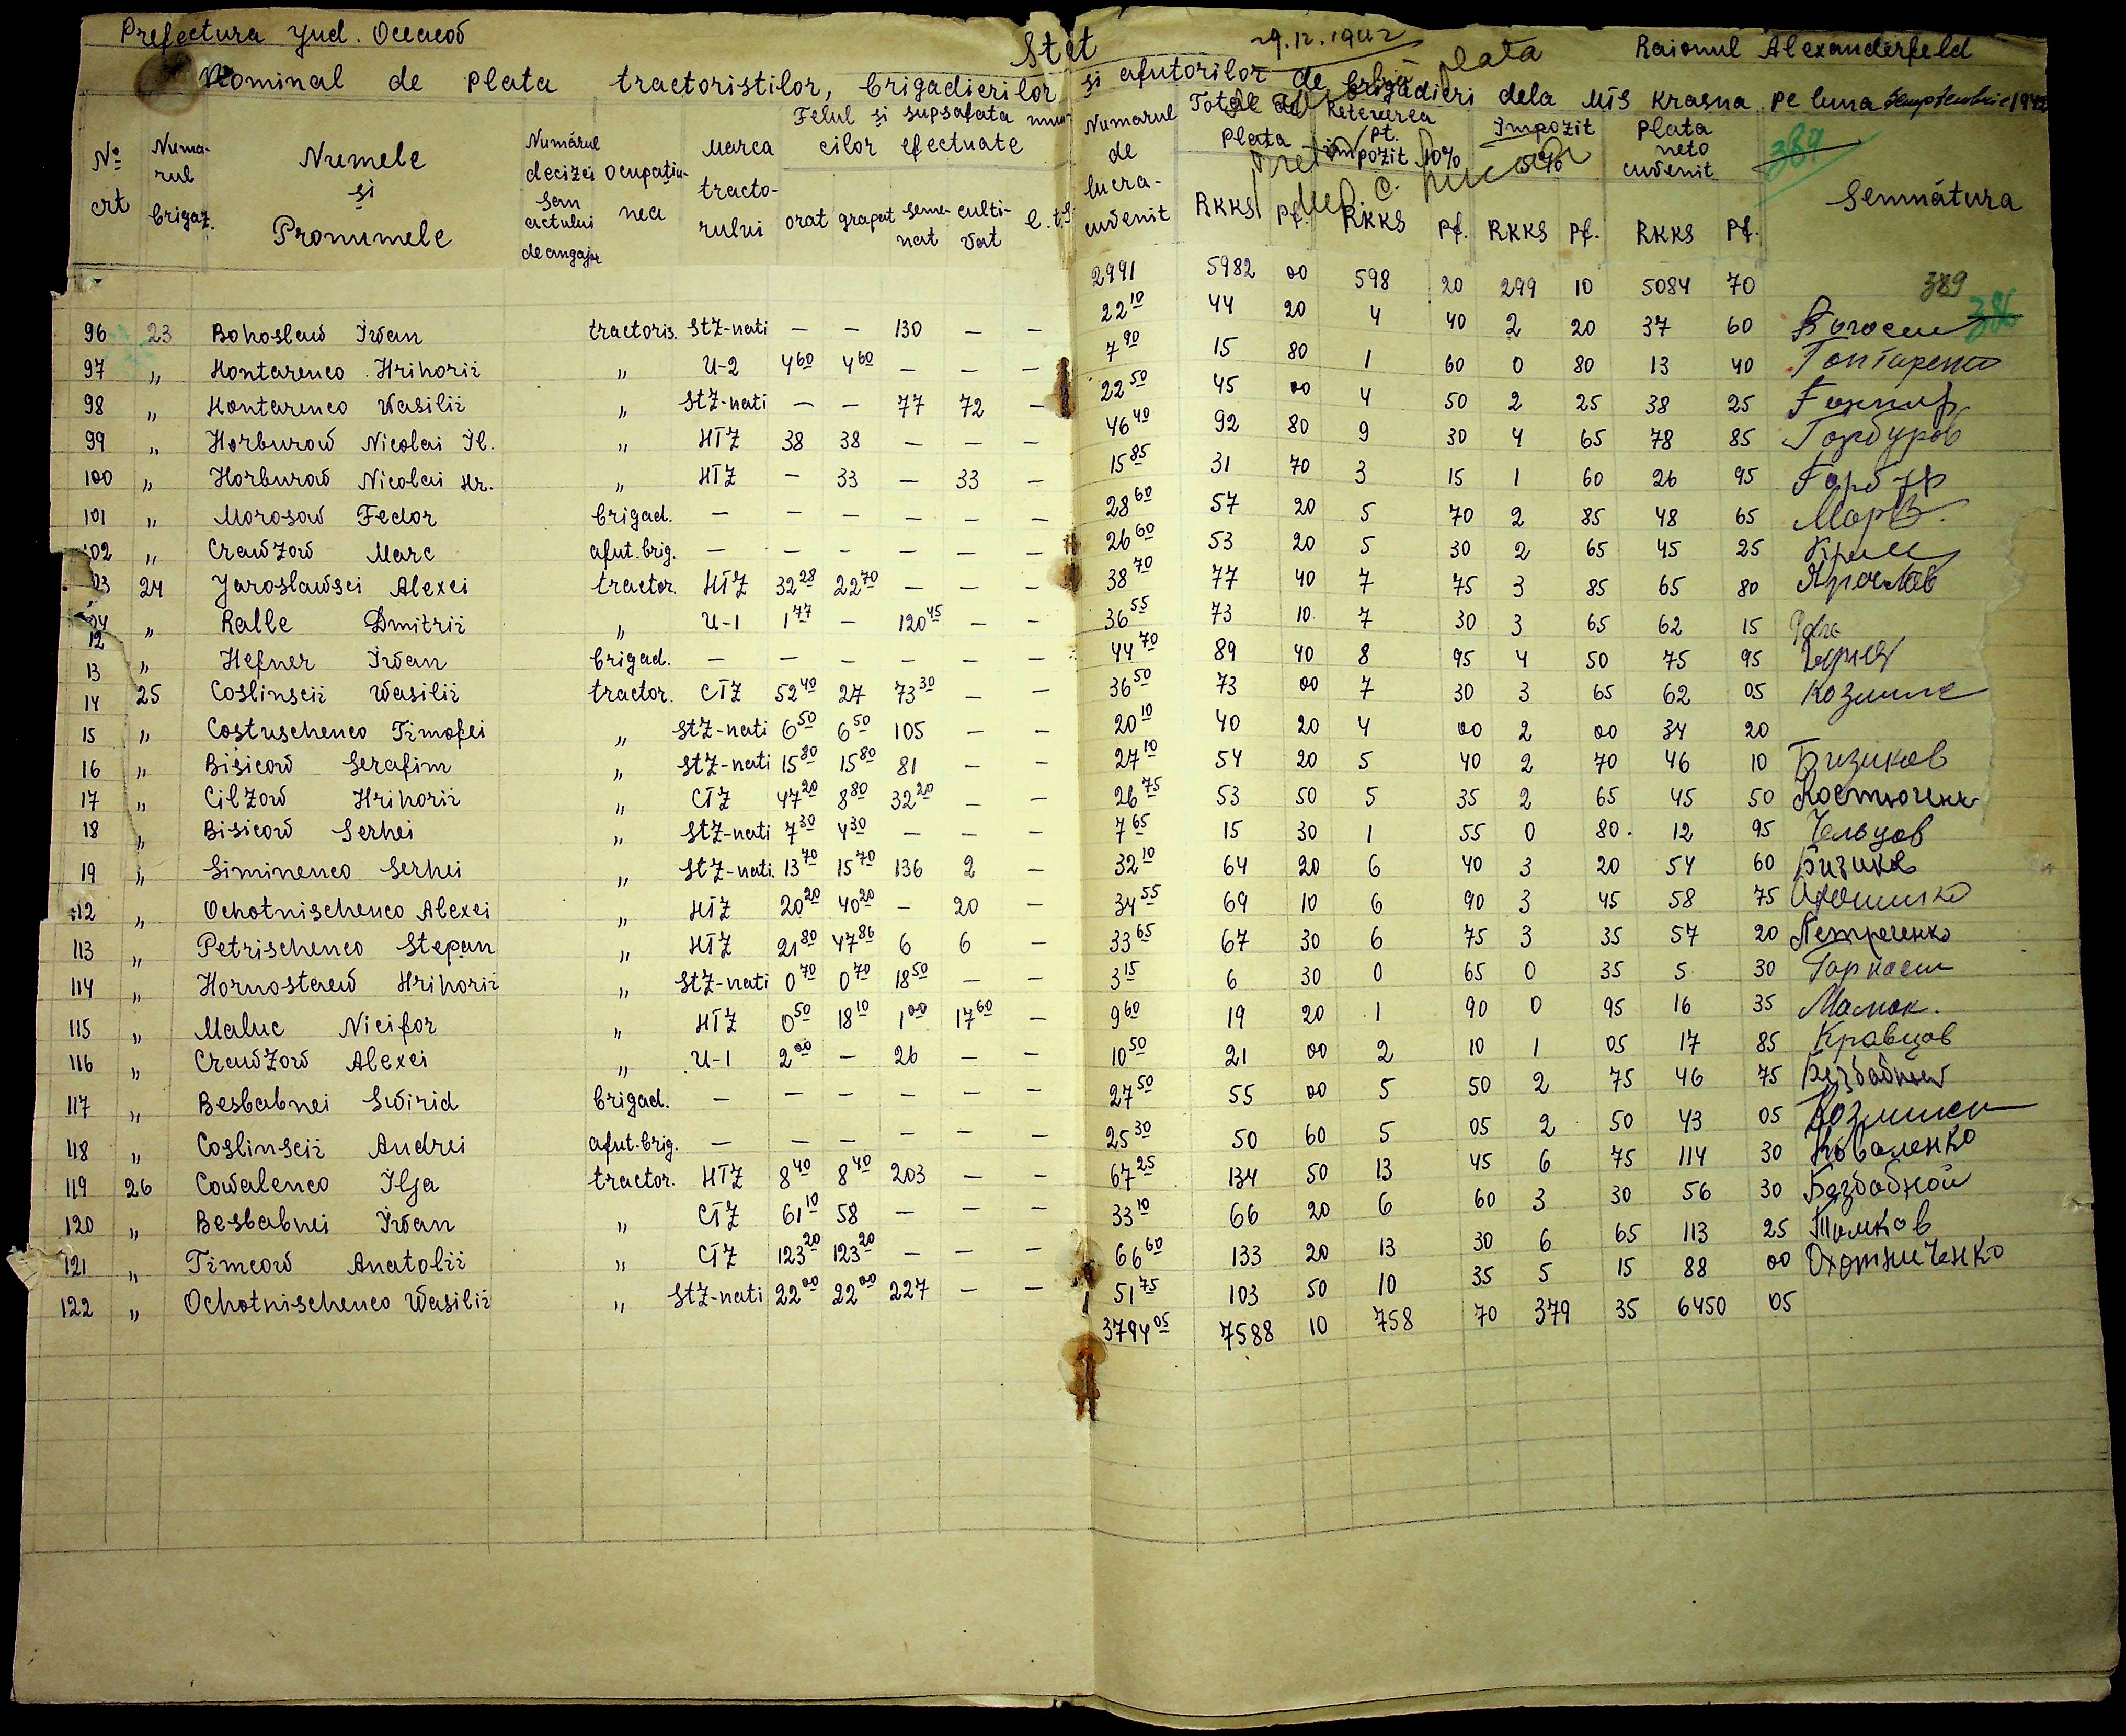 Prefectura jud. Oceacov
Stat
29.12.1942
plata
Raionul Alexanderfeld
Nominal de plata tractoristilor, brigadierilor și ajutorilor de brigadieri dela MTS Krasna pe luna Semptembrie 1942
389
№ crt
Numa-rul brigaz.
Numele și Pronumele
Numărul decizei sau actului de angajar
Ocupațiu-nea
Marca tracto-rului
Felul și supsafata mun-cilor efectuate
orat grapat seme-nat culti-vat
Numarul de lucra- cuvenit
Plata RKKS Pf.
Retenerea pt. impozit 10% RKKS Pf.
Impozit 5% RKKS Pf.
Plata neto cuvenit RKKS Pf.
Semnătura
2991 5982 00 598 20 299 10 5084 70 389
96 23 Bohoslaw Iwan tractoris. StZ-nati — — 130 — — 22 10 44 20 4 40 2 20 37 60
97 " Hontarenco Hrihorii " U-2 4 60 4 60 — — — 7 90 15 80 1 60 0 80 13 40 Гонтаренко
98 " Hontarenco Wasilii " StZ-nati — — 77 72 — 22 50 45 00 4 50 2 25 38 25
99 " Horburow Nicolai Il. " HTZ 38 38 — — — 46 40 92 80 9 30 4 65 78 85 Горбуров
100 " Horburow Nicolai Hr. " HTZ — 33 — 33 — 15 85 31 70 3 15 1 60 26 95
101 " Morosow Fedor brigad. — — — — — — 28 60 57 20 5 70 2 85 48 65
102 " CrawZow Marc ajut.brig. — — — — — — 26 60 53 20 5 30 2 65 45 25
03 24 Jaroslawsci Alexei tractor. HTZ 32 28 22 70 — — — 38 70 77 40 7 75 3 85 65 80
04 " Ralle Dmitrii " U-1 1 77 — 120 45 — — 36 55 73 10 7 30 3 65 62 15
12
13 " Hefner Iwan brigad. — — — — — — 44 70 89 40 8 95 4 50 75 95
14 25 Coslinscii Wasilii tractor. CTZ 52 40 27 73 30 — — 36 50 73 00 7 30 3 65 62 05
15 " Costuschenco Timofei " StZ-nati 6 50 6 50 105 — — 20 10 40 20 4 00 2 00 34 20
16 " Bisicow Serafim " StZ-nati 15 80 15 80 81 — — 27 10 54 20 5 40 2 70 46 10 Бизиков
17 " CilZow Hrihorii " CTZ 47 20 8 80 32 20 — — 26 75 53 50 5 35 2 65 45 50
18 " Bisicow Serhei " StZ-nati 7 30 4 30 — — — 7 65 15 30 1 55 0 80 12 95 Чельцов
19 " Siminenco Serhei " StZ-nati 13 70 15 70 136 2 — 32 10 64 20 6 40 3 20 54 60 Бизиков
112 " Ochotnischenco Alexei " HTZ 20 20 40 20 — 20 — 34 55 69 10 6 90 3 45 58 75
113 " Petrischenco Stepan " HTZ 21 80 47 86 6 6 — 33 65 67 30 6 75 3 35 57 20 Петреченко
114 " Hornostaew Hrihorii " StZ-nati 0 70 0 70 18 50 — — 3 15 6 30 0 65 0 35 5 30
115 " Maluc Nicifor " HTZ 0 50 18 10 1 00 17 60 — 9 60 19 20 1 90 0 95 16 35
116 " CrawZow Alexei " U-1 2 00 — 26 — — 10 50 21 00 2 10 1 05 17 85 Кравцов
117 " Besbabnei Swirid brigad. — — — — — — 27 50 55 00 5 50 2 75 46 75
118 " Coslinscii Andrei ajut.brig. — — — — — — 25 30 50 60 5 05 2 50 43 05
119 26 Cowalenco Ilja tractor. HTZ 8 40 8 40 203 — — 67 25 134 50 13 45 6 75 114 30 Коваленко
120 " Besbabnei Iwan " CTZ 61 10 58 — — — 33 10 66 20 6 60 3 30 56 30 Безбабной
121 " Timcow Anatolii " CTZ 123 20 123 20 — — — 66 60 133 20 13 30 6 65 113 25 Тимков
122 " Ochotnischenco Wasilii " StZ-nati 22 00 22 00 227 — — 51 75 103 50 10 35 5 15 88 00 Охотниченко
3794 05 7588 10 758 70 379 35 6450 05